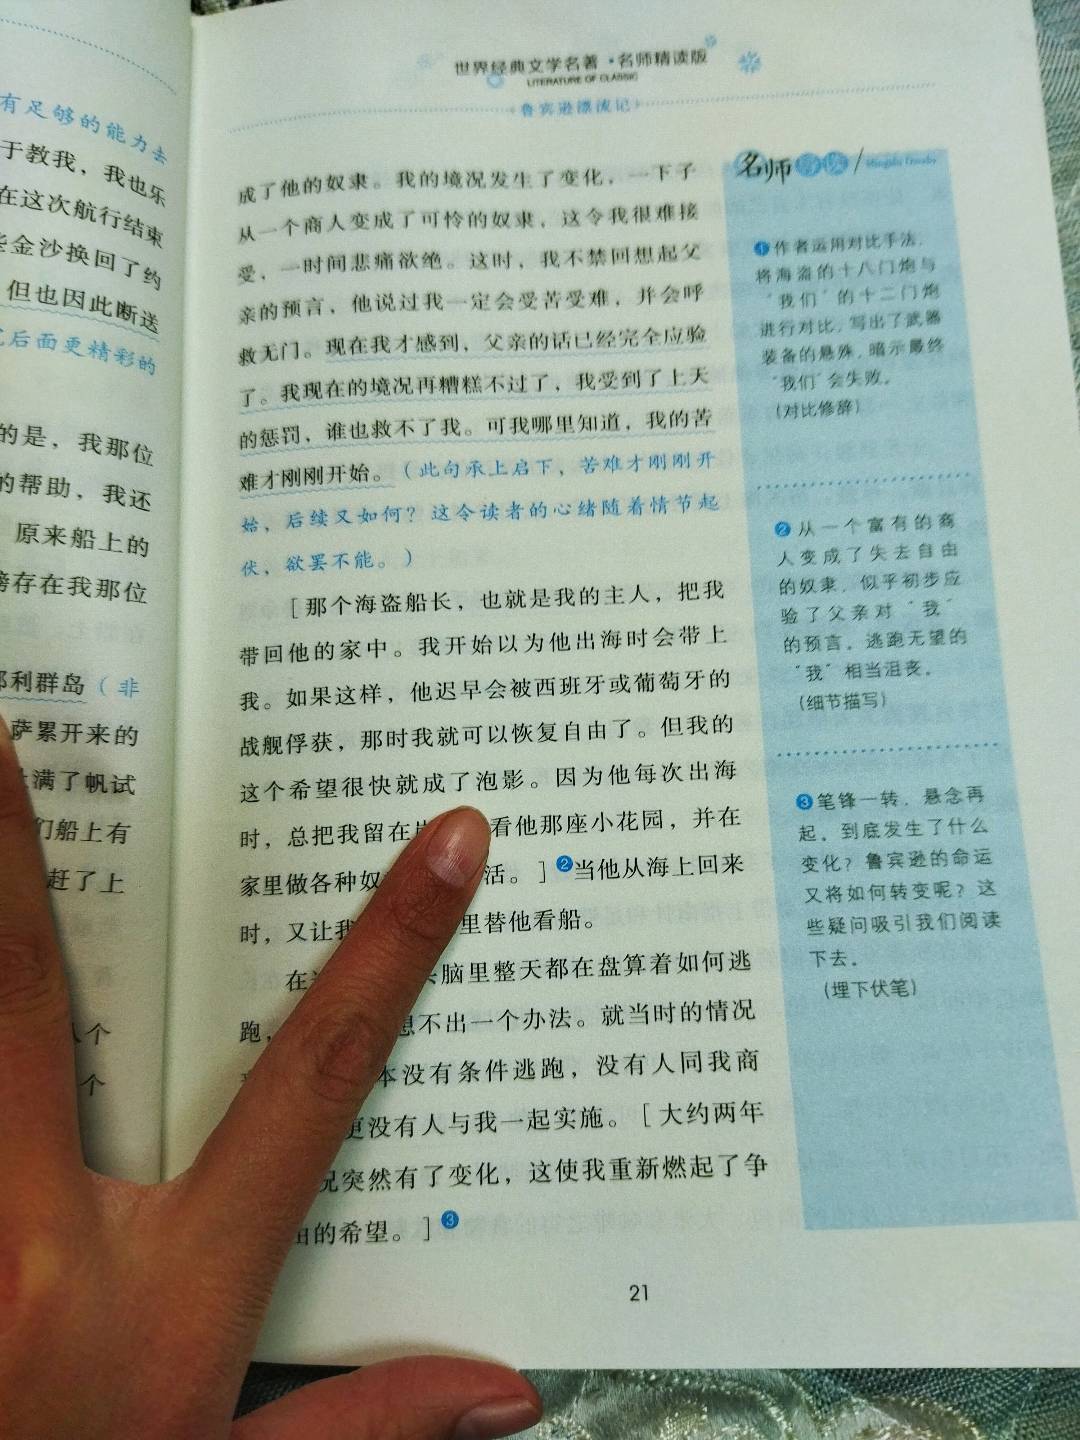 有足够的能力去
于教我，我也乐
在这次航行结束
些金沙换回了约
但也因此断送
后面更精彩的
的是，我那位
的帮助，我还
原来船上的
存在我那位
利群岛（非
萨累开来的
满了帆试
们船上有
赶了上
个
个
世界经典文学名著·名师精读版
LITERATURE OF CLASSIC
鲁宾逊漂流记
成了他的奴隶。我的境况发生了变化，一下子
从一个商人变成了可怜的奴隶，这令我很难接
受，一时间悲痛欲绝。这时，我不禁回想起父
亲的预言，他说过我一定会受苦受难，并会呼
救无门。现在我才感到，父亲的话已经完全应验
了。我现在的境况再糟糕不过了，我受到了上天
的惩罚，谁也救不了我。可我哪里知道，我的苦
难才刚刚开始。（此句承上启下，苦难才刚刚开
始，后续又如何？这令读者的心绪随着情节起
伏，欲罢不能。）
［那个海盗船长，也就是我的主人，把我
带回他的家中。我开始以为他出海时会带上
我。如果这样，他迟早会被西班牙或葡萄牙的
战舰俘获，那时我就可以恢复自由了。但我的
这个希望很快就成了泡影。因为他每次出海
时，总把我留在看他那座小花园，并在
家里做各种奴活。］②当他从海上回来
时，又让我里替他看船。
在脑里整天都在盘算着如何逃
跑，想不出一个办法。就当时的情况
本没有条件逃跑，没有人同我商
更没有人与我一起实施。［大约两年
况突然有了变化，这使我重新燃起了争
由的希望。］③
21
名师导读
①作者运用对比手法，
将海盗的十八门炮与
“我们”的十二门炮
进行对比，写出了武器
装备的悬殊，暗示最终
“我们”会失败。
（对比修辞）
②从一个富有的商
人变成了失去自由
的奴隶，似乎初步应
验了父亲对“我”
的预言。逃跑无望的
“我”相当沮丧。
（细节描写）
③笔锋一转，悬念再
起。到底发生了什么
变化？鲁宾逊的命运
又将如何转变呢？这
些疑问吸引我们阅读
下去。
（埋下伏笔）